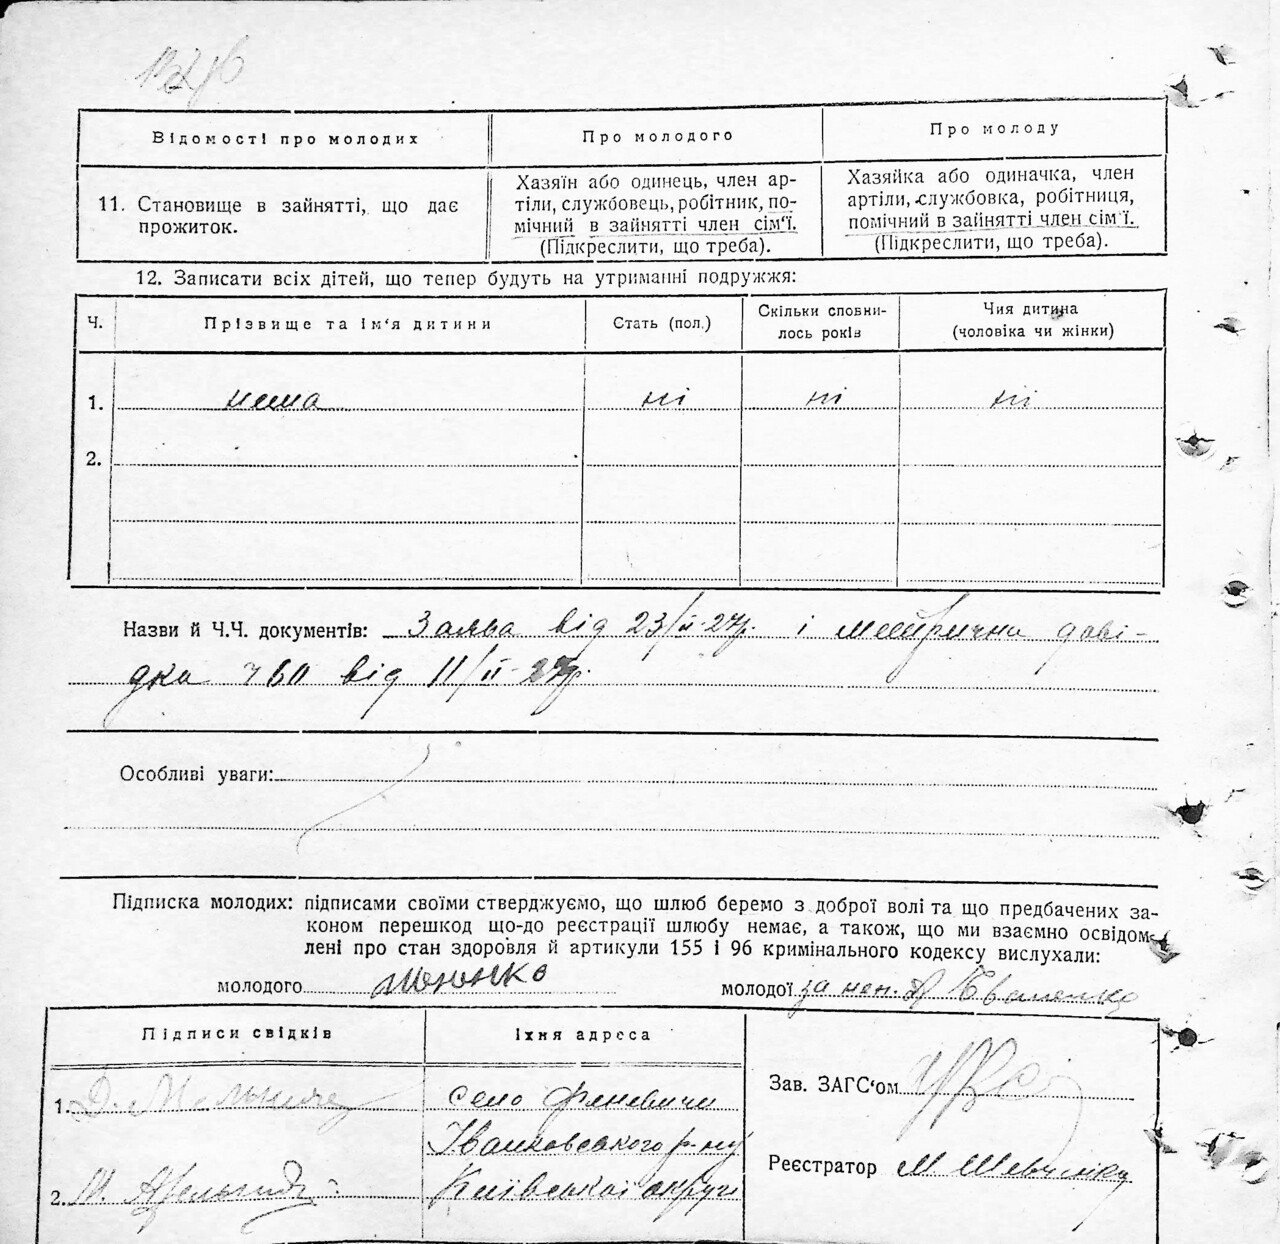 Відомості про молодих
Про молодого
Про молоду
11. Становище в зайнятті, що дає прожиток.
Хазяїн або одинець, член ар-
тіли, службовець, робітник, по-
мічний в зайнятті член сім'ї.
(Підкреслити, що треба).
Хазяйка або одиначка, член
артіли, службовка, робітниця,
помічний в зайнятті член сім'ї.
(Підкреслити, що треба).
12. Записати всіх дітей, що тепер будуть на утриманні подружжя:
Ч.
Прізвище та ім'я дитини
Стать (пол.)
Скільки сповни-
лось років
Чия дитина
(чоловіка чи жінки)
1. нема ні ні ні
2.
Назви й Ч.Ч. документів: Заява від 23/II-27р. і метрична дові-
дка від 11/II-27р.
Особливі уваги:
Підписка молодих: підписами своїми стверджуємо, що шлюб беремо з доброї волі та що предбачених за-
коном перешкод що-до реєстрації шлюбу немає, а також, що ми взаємно освідом-
лені про стан здоров'я й артикули 155 і 96 кримінального кодексу вислухали:
молодого
молодої за неп.
Підписи свідків
Їхня адреса
1. Д.
село
Іванковського р-ну
Київської округи
2.
Зав. ЗАГС'ом
Реєстратор М